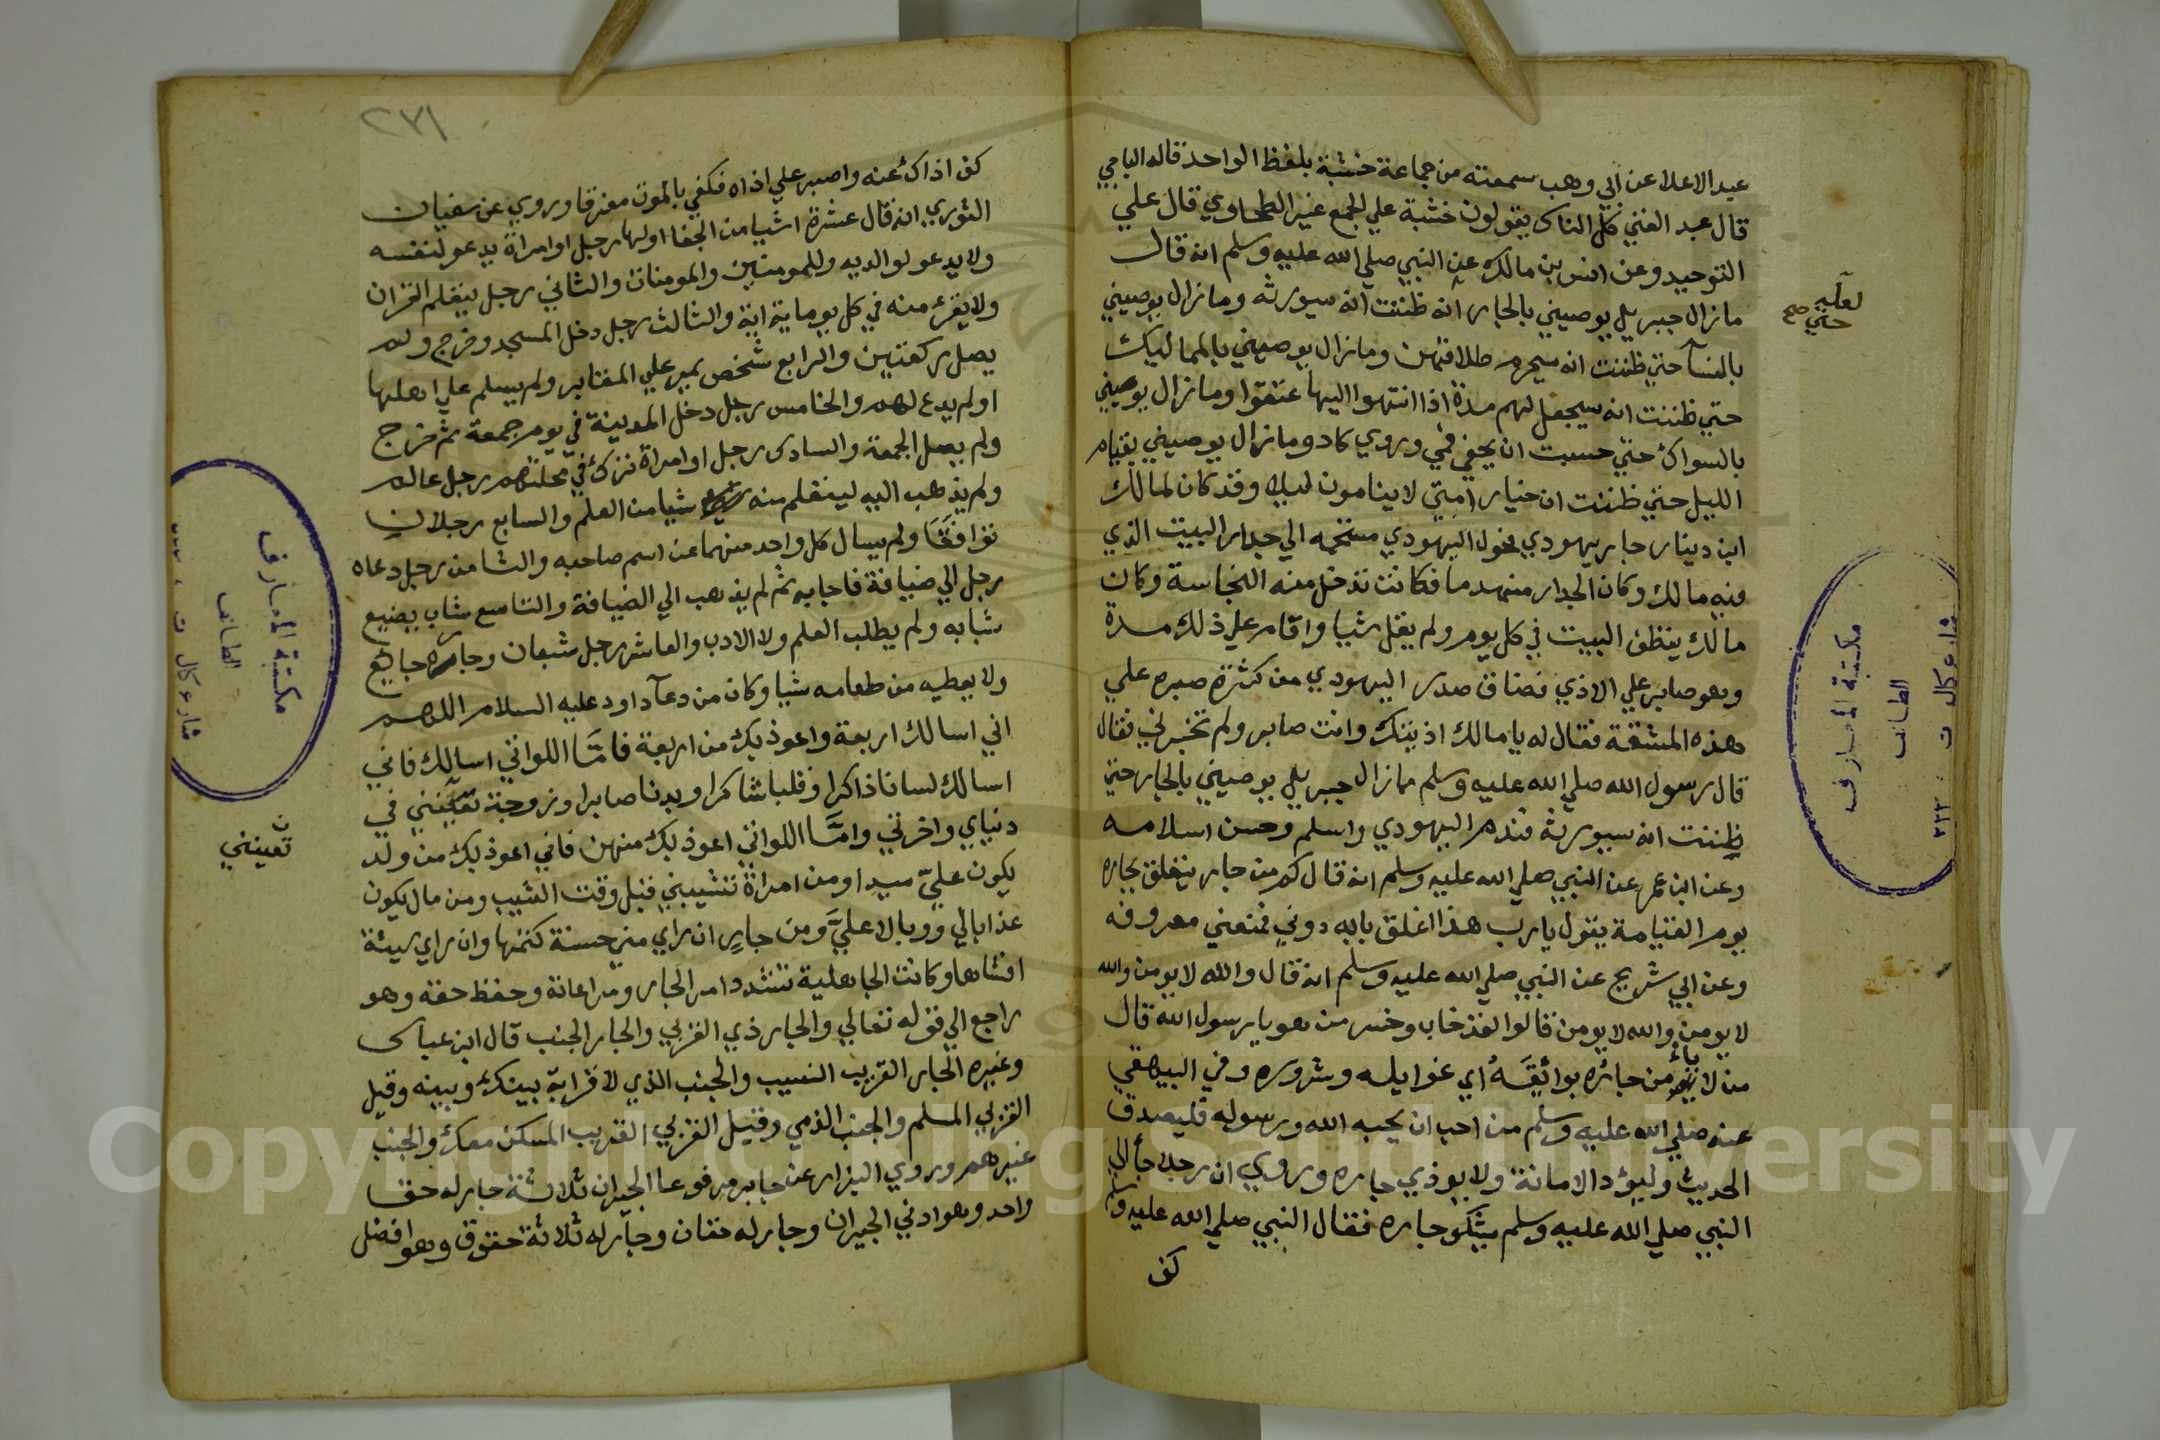 عبد الاعلا عن ابي وهب سمعته من جماعة خشبة بلفظ الواحد قاله البامي
قال عبد الغني كل الناس يقولون خشبة علي الجمع غير الطحاوي قال علي
التوحيد وعن انس بن مالك عن النبي صلي الله عليه وسلم انه قال
مازال جبريل يوصيني بالجار انه ظننت انه سيورثه ومازال يوصيني
لعله
حتي صح
بالنسآ حتي ظننت انه سيحرم طلاقهن ومازال يوصيني بالمماليك
حتي ظننت انه سيجعل لهم مدة اذا انتهوا اليها عتقوا ومازال يوصيني
بالسواك حتي حسبت ان يحفي فمي وروي كاد ومازال يوصيني بقيام
الليل حتي ظننت ان خيار امتي لا ينامون ليلا وقد كان لمالك
ابن دينار جار يهودي فحول اليهودي مستحمه الي جدار البيت الذي
فيه مالك وكان الجدار منهدما فكانت تدخل منه النجاسة وكان
مالك ينظف البيت في كل يوم ولم يقل شيا واقام علي ذلك مدة
وهو صابر علي الاذي فضاق صدر اليهودي من كثرة صبره علي
هذه المشقة فقال له يا مالك اذيتك وانت صابر ولم تخبرني فقال
قال رسول الله صلي الله عليه وسلم مازال جبريل يوصيني بالجار حتي
ظننت انه سيورثه فندم اليهودي واسلم وحسن اسلامه
وعن ابن عمر عن النبي صلي الله عليه وسلم انه قال كم من جار يتعلق بجاره
يوم القيامة يقول يارب هذا اغلق بابه دوني فمنعني معروفه
وعن ابي شريح عن النبي صلي الله عليه وسلم انه قال والله لا يومن والله
لا يومن والله لا يومن قالوا لقد خاب وخسر من هو يا رسول الله قال
من لا يامن جاره بوائقه اي غوايله وشروره وفي البيهقي
عنه صلي الله عليه وسلم من احب ان يحبه الله ورسوله فليصدق
الحديث وليؤد الامانة ولا يوذي جاره وروي ان رجلا جأ الي
النبي صلي الله عليه وسلم يشكو جاره فقال النبي صلي الله عليه وسلم
كف
مكتبة المعارف
الطائف
شارع كمال ت
٢٧١
كف اذاك عنه واصبر علي اذاه فكفي بالموت مفرقا وروي عن سفيان
الثوري انه قال عشرة اشيا من الجفا اولها رجل او امراة يدعو لنفسه
ولا يدعو لوالديه وللمومنين والمومنات والثاني رجل يتعلم القران
ولا يقرء منه في كل يوم اية والثالث رجل دخل المسجد وخرج ولم
يصل ركعتين والرابع شخص يمر علي المقابر ولم يسلم علي اهلها
او لم يدع لهم والخامس رجل دخل المدينة في يوم جمعة ثم خرج
ولم يصل الجمعة والسادس رجل او امراة نزل في محلتهم رجل عالم
ولم يذهب اليه ليتعلم منه شيا من العلم والسابع رجلان
توافقا ولم يسال كل واحد منهما عن اسم صاحبه والثامن رجل دعاه
رجل الي ضيافة فاجابه ثم لم يذهب الي الضيافة والتاسع شاب يضيع
شبابه ولم يطلب العلم ولا الادب والعاشر رجل شبعان وجاره جايع
ولا يعطيه من طعامه شيا وكان من دعآ داود عليه السلام اللهم
اني اسالك اربعة واعوذ بك من اربعة فامّا اللواتي اسالك فاني
اسالك لسانا ذاكرا وقلبا شاكرا وبدنا صابرا وزوجة تعينني في
ن
تعينني
دنياي واخرتي وامّا اللواتي اعوذ بك منهن فاني اعوذ بك من ولد
يكون عليّ سيدا ومن امراة تشيبني قبل وقت الشيب ومن مال يكون
عذابا لي ووبالا عليّ ومن جار ان راي مني حسنة كتمها وان راي سيئة
افشاها وكانت الجاهلية تشدد امر الجار ومراعاته وحفظ حقه وهو
راجع الي قوله تعالي والجار ذي القربي والجار الجنب قال ابن عباس
وغيره الجار القريب النسيب والجنب الذي لا قرابة بينك وبينه وقيل
القربي المسلم والجنب الذمي وقيل القربي القريب المسكن معك والجنب
غيرهم وروي البزار عن جابر مرفوعا الجيران ثلاثة جار له حق
واحد وهو ادني الجيران وجار له حقان وجار له ثلاثة حقوق وهو افضل
مكتبة المعارف
الطائف
شارع كمال ت
Copyright © King Saud University